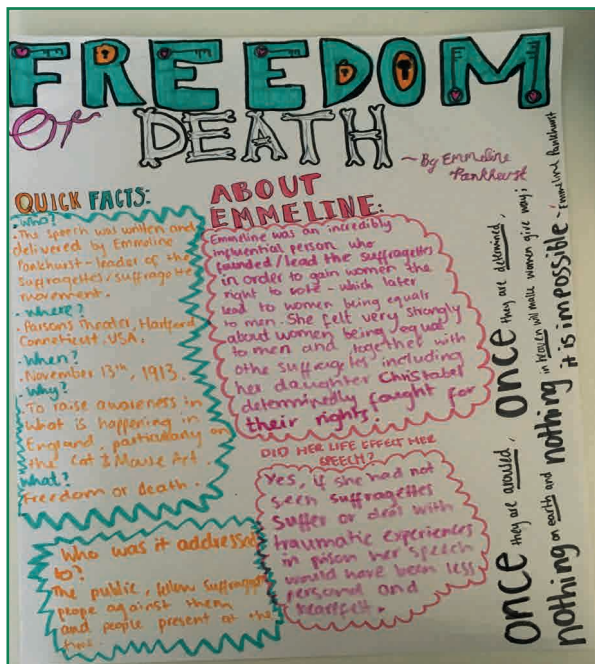 FREEDOM
Or DEATH
~By Emmeline
Pankhurst
QUICK FACTS:
• Who?
• The speech was written and
delivered by Emmeline
Pankhurst - leader of the
suffragettes/suffragette
movement.
• Where?
• Parsons Theatre, Hartford
Conneticut, USA.
• When?
• November 13th, 1913.
• Why?
To raise awareness in
what is happening in
England, particularly on
the Cat & Mouse Act.
What?
Freedom or death.
Who was it addressed
to?
The public, fellow suffragettes
peope against them
and people present at the
time.
ABOUT
EMMELINE:
Emmeline was an incredibly
influential person who
founded/lead the suffragettes
in order to gain women the
right to vote - which later
lead to women being equals
to men. She felt very strongly
about women being equal
to men and together with
othe suffragettes including
her daughter Christabel
determinedly fought for
their rights!
DID HER LIFE EFFECT HER
SPEECH?
Yes, if she had not
seen suffragettes
suffer or deal with
traumatic experiences
in prison her speech
would have been less
personal and
heartfelt.
once they are aroused, once they are determined,
nothing on earth and nothing in heaven will make women give way;
it is impossible ~ Emmeline Pankhurst